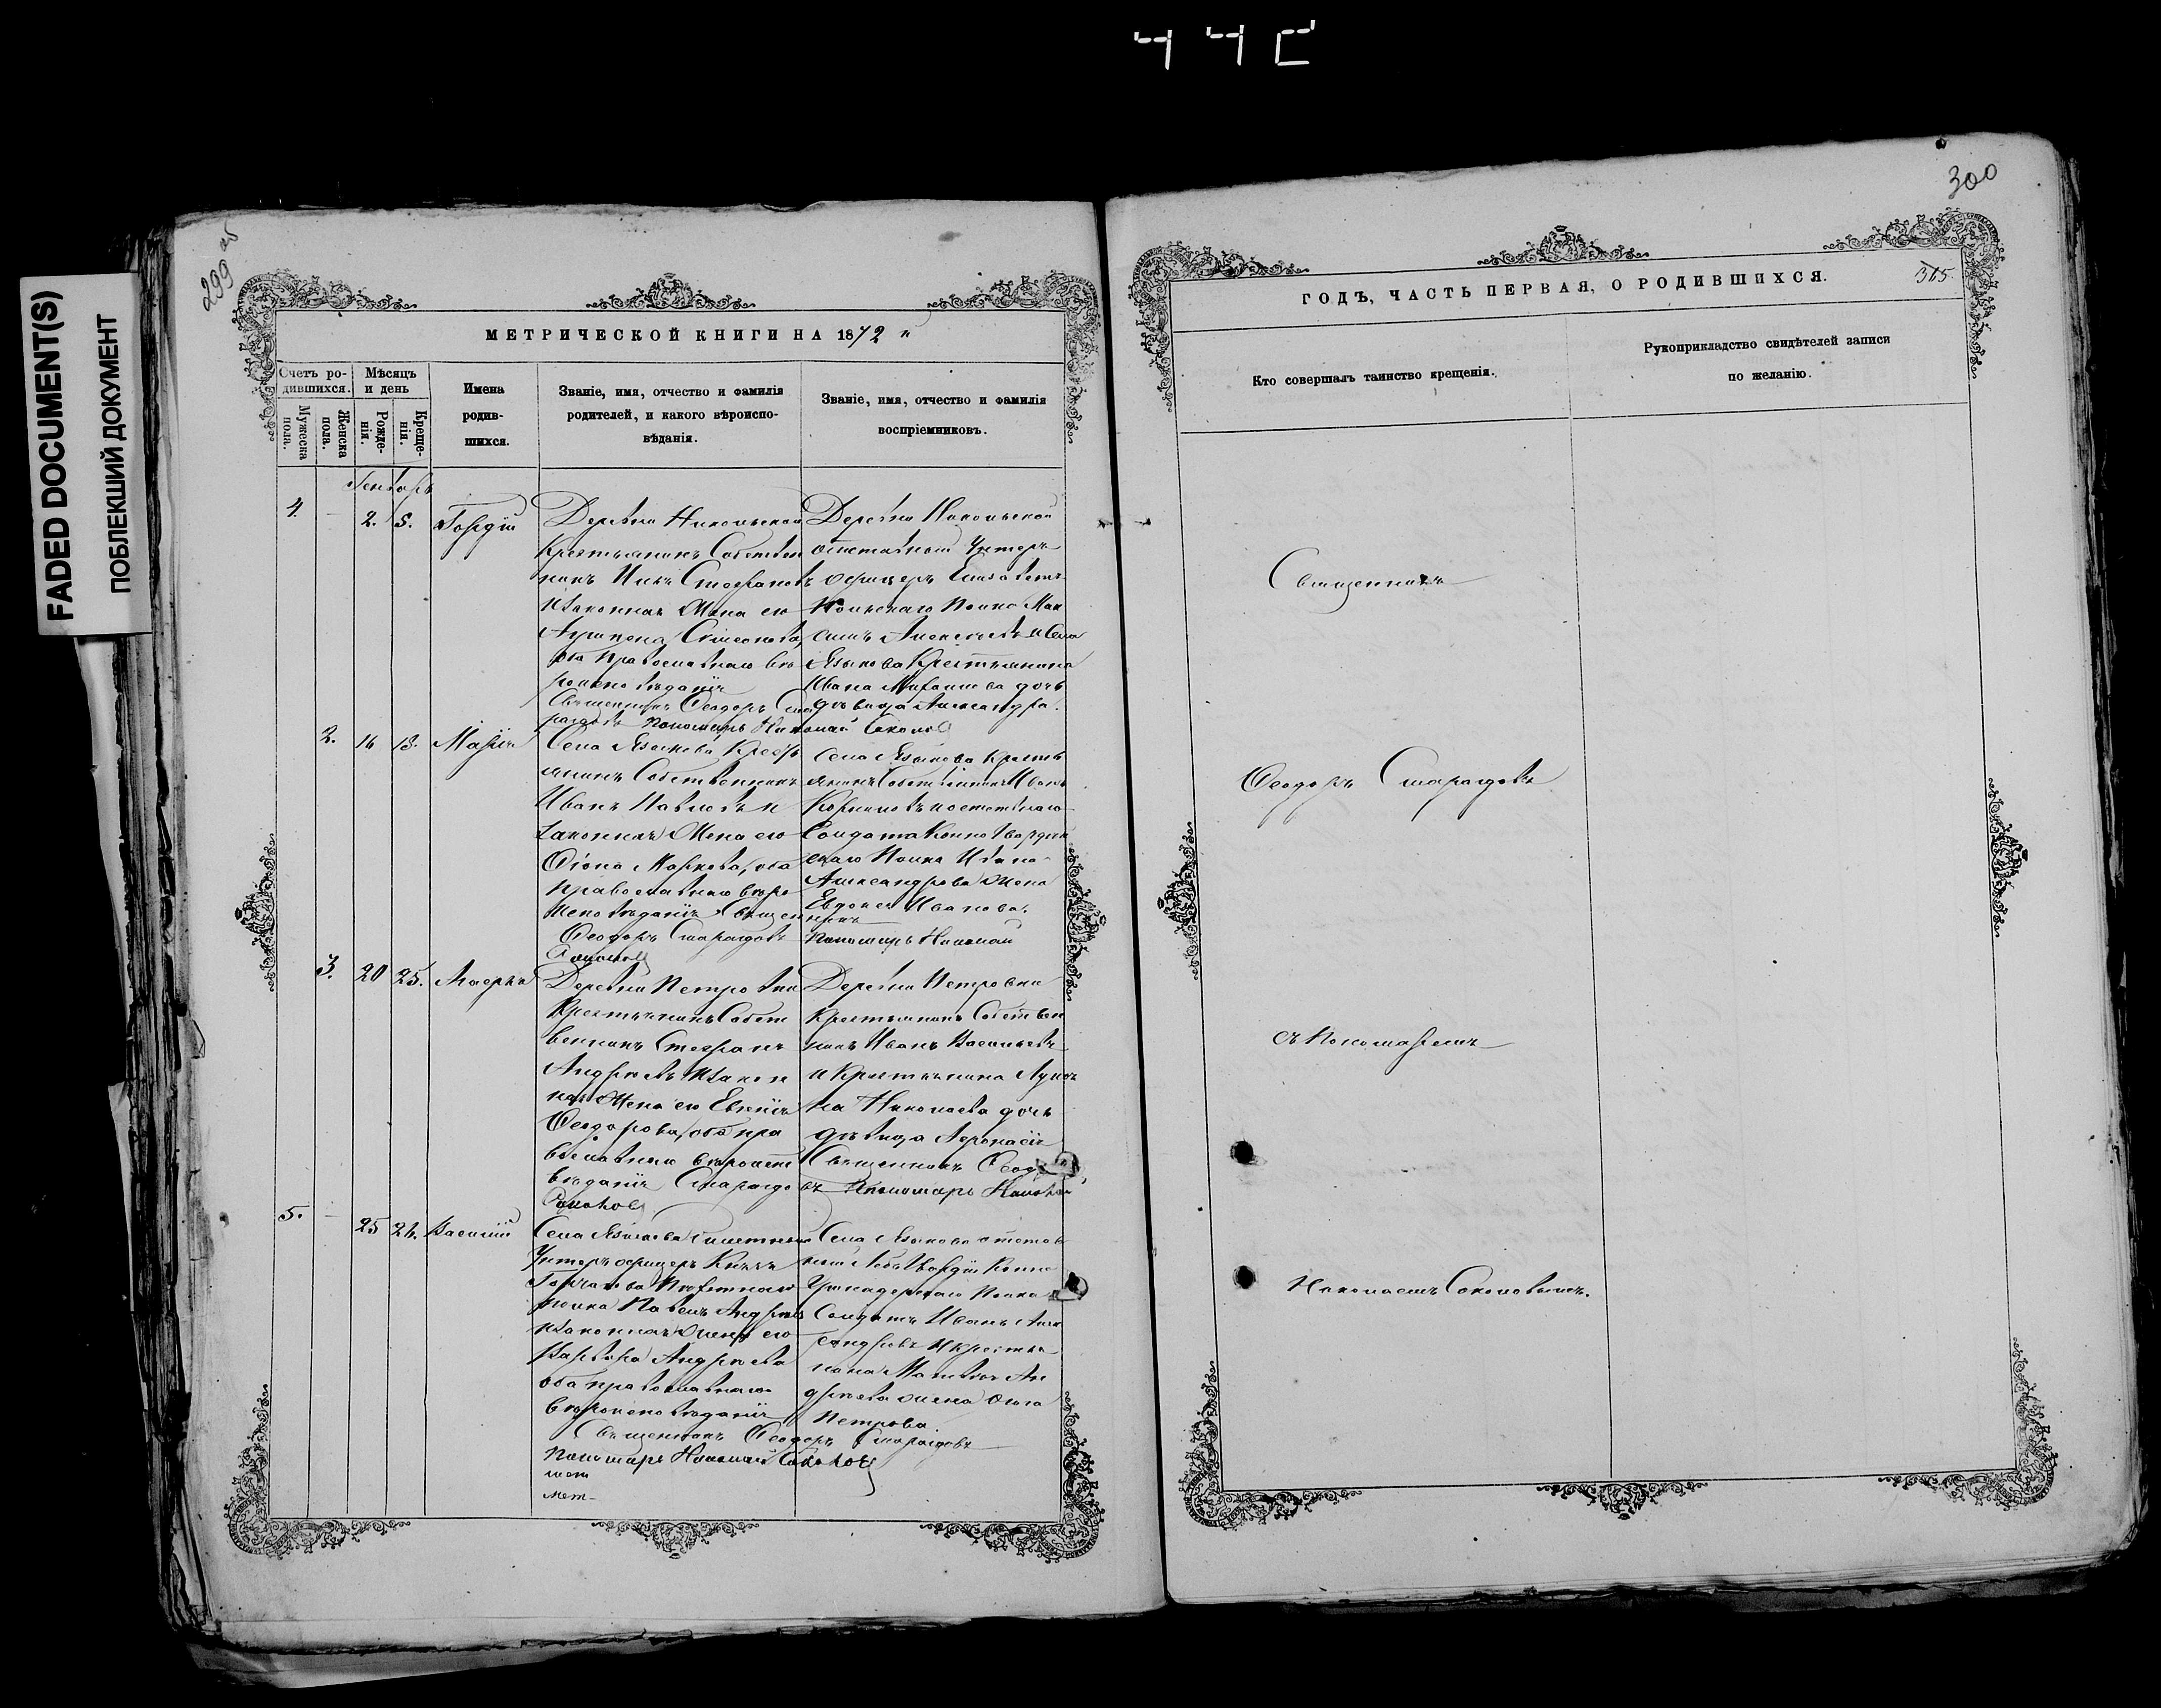 442
FADED DOCUMENT(S)
ПОБЛЕКШИЙ ДОКУМЕНТ
299 об
МЕТРИЧЕСКОЙ КНИГИ НА 1872
Счетъ ро-
дившихся.
Мѣсяцъ
и день
Мужеска
пола.
Женска
пола.
Рожде-
нія.
Креще-
нія.
Имена
родив-
шихся.
Званіе, имя, отчество и фамилія
родителей, и какого вѣроиспо-
вѣданія.
Званіе, имя, отчество и фамилія
воспріемниковъ.
Генварь
4. – 2. 5. Гордій
Деревни Никольской
Крестьянинъ Собствен
никъ Стефановъ
и законная Жена его
Агрипена Симеонова,
оба православнаго вѣ
роисповѣданія
Священникъ Ѳеодоръ Смарагдовъ Пономарь Николай Соколовъ
Деревни Никольской
отставной Унтеръ
офицеръ Елисавет
польскаго Полка Мак
симъ Алексеевъ и Села
Языкова Крестьянина
Ивана Михаилова дочь
дѣвица Александра.
2. 16 18. Марія
Села Языкова Кресть
янинъ Собственникъ
Иванъ Павловъ и
законная Жена его
Маркова, оба
православнаго вѣро
исповѣданія Священникъ
Ѳеодоръ Смарагдовъ
Соколовъ
Села Языкова Кресть
янинъ Собственникъ Иванъ
Корниловъ и отставнаго
Солдата Конно Гвардей
скаго Полка Ивана
Александрова жена
Евдокея Иванова.
Пономарь Николай
3. 20 25. Агафья
Деревни Петровки
Крестьянинъ Собст
венникъ Стефанъ
Андреевъ и закон
ная Жена его Евгенія
Ѳеодорова, оба пра
вославнаго вѣроиспо
вѣданія Смарагдовъ Пономарь Николай
Соколовъ
Деревни Петровки
Крестьянинъ Собствен
никъ Иванъ Васильевъ
и Крестьянина
Николаева дочь
дѣвица Афонасія
Священникъ Ѳеодоръ
5. – 25 26. Василій
Села Языкова
Унтеръ офицеръ Князя
Горчакова Пехотнаго
полка Павелъ Андреевъ
и законная жена его
Варвара Андреева
оба православнаго
вѣроисповѣданія
Священникъ Ѳеодоръ Смарагдовъ
Пономарь Николай Соколовъ
Села Языкова отстав
ной Лейбъ Гвардіи Конно
Гренадерскаго Полка
Солдатъ Иванъ Алек
сандровъ и крестья
нина Матвея Ан
дреева жена
Петрова
300
ГОДЪ, ЧАСТЬ ПЕРВАЯ, О РОДИВШИХСЯ.
305.
Кто совершалъ таинство крещенія.
Рукоприкладство свидѣтелей записи
по желанію.
Священникъ
Ѳеодоръ Смарагдовъ
съ Пономаремъ
Николаемъ Соколовымъ.